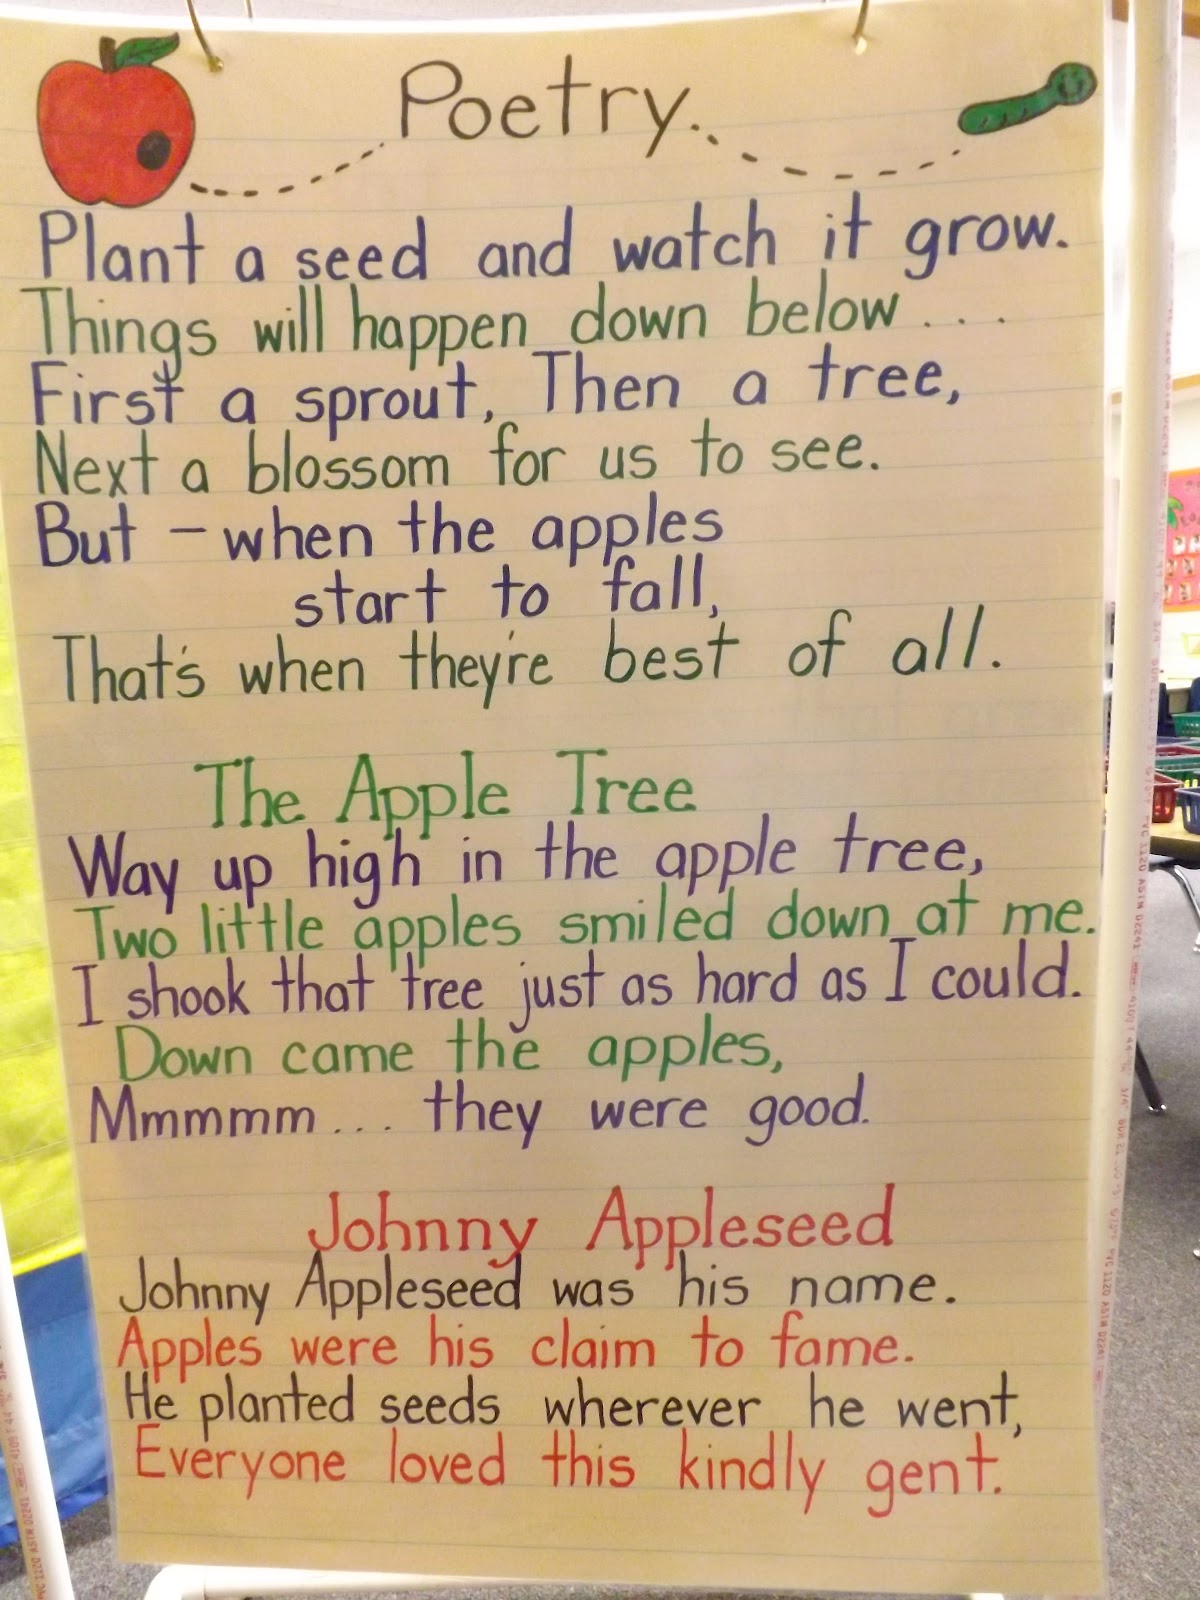 Poetry.
Plant a seed and watch it grow.
Things will happen down below...
First a sprout, Then a tree,
Next a blossom for us to see.
But – when the apples
start to fall,
That's when they're best of all.
The Apple Tree
Way up high in the apple tree,
Two little apples smiled down at me.
I shook that tree just as hard as I could.
Down came the apples,
Mmmmm... they were good.
Johnny Appleseed
Johnny Appleseed was his name.
Apples were his claim to fame.
He planted seeds wherever he went,
Everyone loved this kindly gent.